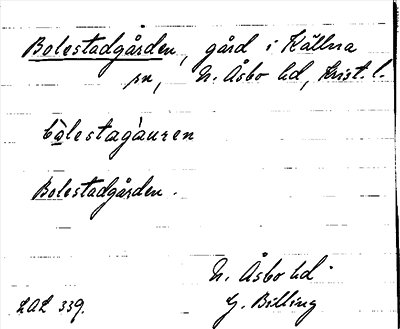 Bolestadgården, gård i Källna
sn, N. Åsbo hd, Krist. l.
bòlestagàuren
Bolestadgården.
N. Åsbo hd
LAL 339. G. Billing